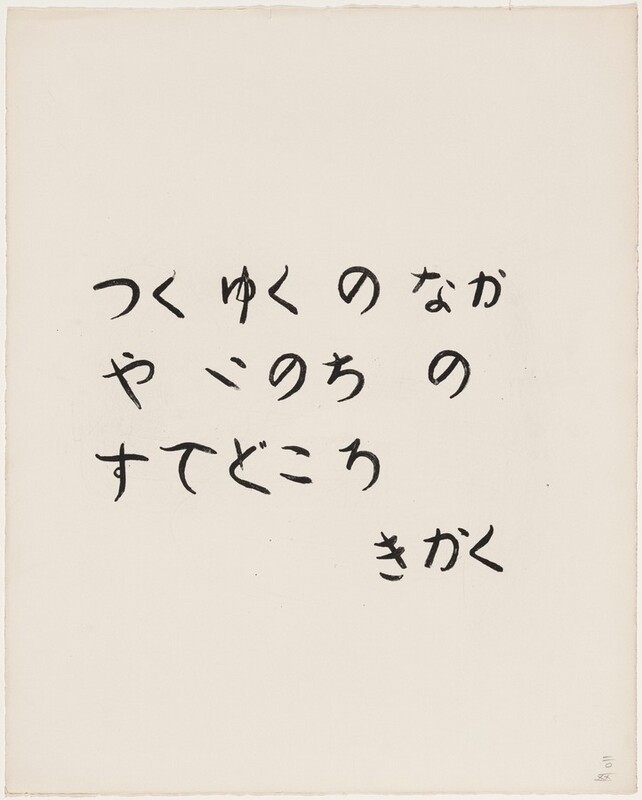 つく ゆく の なか
や いのち の
すてどころ
きかく